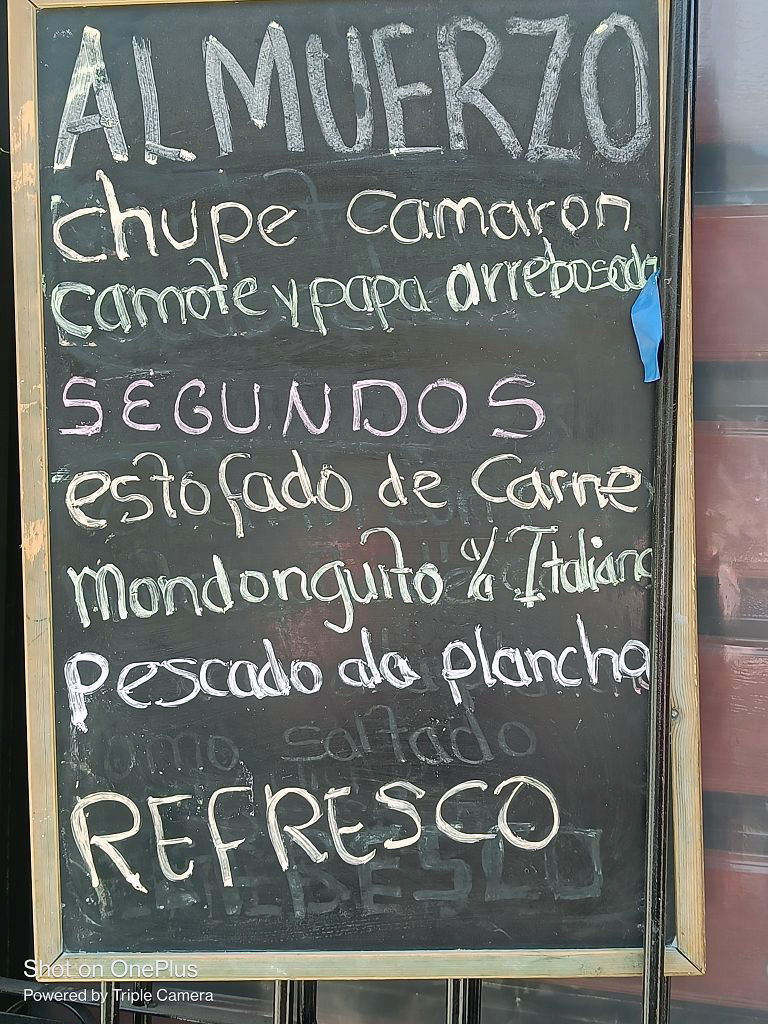 ALMUERZO
chupe camaron
camote y papa arrebosada
SEGUNDOS
estofado de carne
mondonguito % Italiana
pescado ala plancha
lomo saltado
REFRESCO
REFRESCO
Shot on OnePlus
Powered by Triple Camera